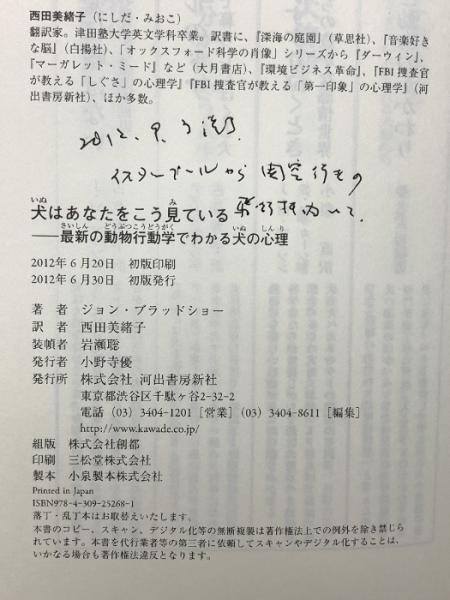 西田美緒子（にしだ・みおこ）
翻訳家。津田塾大学英文学科卒業。訳書に、『深海の庭園』（草思社）、『音楽好き
な脳』（白揚社）、「オックスフォード科学の肖像」シリーズから『ダーウィン』、
『マーガレット・ミード』など（大月書店）、『環境ビジネス革命』、『FBI捜査官
が教える「しぐさ」の心理学』『FBI捜査官が教える「第一印象」の心理学』（河
出書房新社）、ほか多数。
2012. 9. 3
イスタンブールから関空行きの
犬はあなたをこう見ている
――最新の動物行動学でわかる犬の心理
2012年6月20日 初版印刷
2012年6月30日 初版発行
著者 ジョン・ブラッドショー
訳者 西田美緒子
装幀者 岩瀬聡
発行者 小野寺優
発行所 株式会社 河出書房新社
東京都渋谷区千駄ヶ谷2-32-2
電話（03）3404-1201［営業］（03）3404-8611［編集］
http://www.kawade.co.jp/
組版 株式会社創都
印刷 三松堂株式会社
製本 小泉製本株式会社
Printed in Japan
ISBN978-4-309-25268-1
落丁・乱丁本はお取替えいたします。
本書のコピー、スキャン、デジタル化等の無断複製は著作権法上での例外を除き禁じら
れています。本書を代行業者等の第三者に依頼してスキャンやデジタル化することは、
いかなる場合も著作権法違反となります。